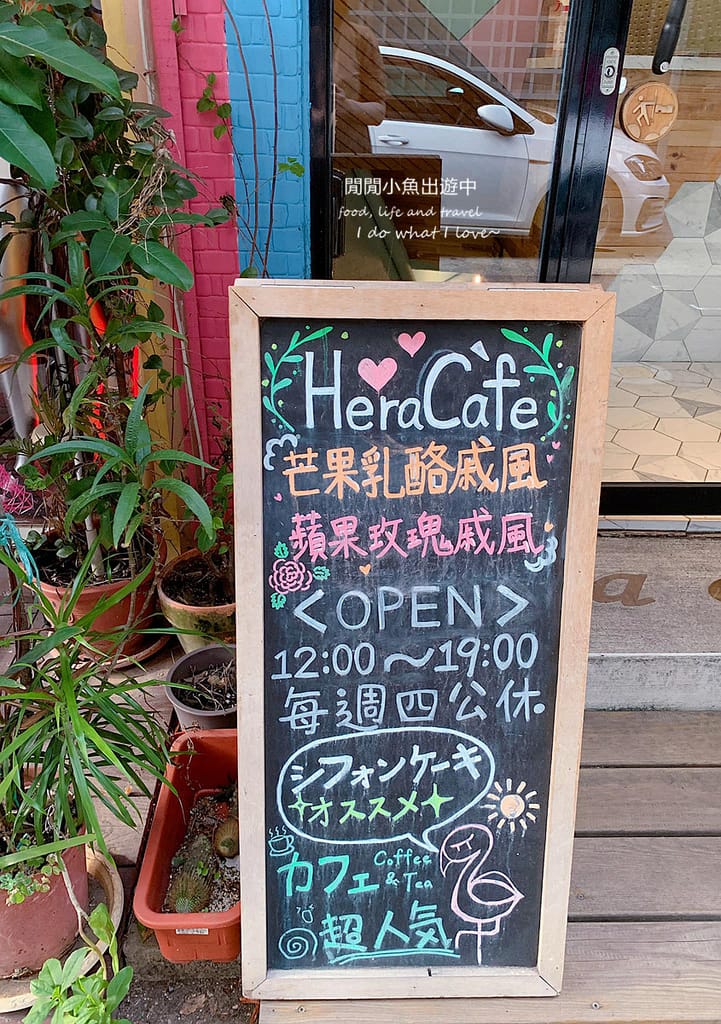 閒閒小魚出遊中
food, life and travel
I do what I love~
HeraCafe
芒果乳酪戚風
蘋果玫瑰戚風
<OPEN>
12:00～19:00
每週四公休.
シフォンケーキ
オススメ
カフェ Coffee & Tea
超人気